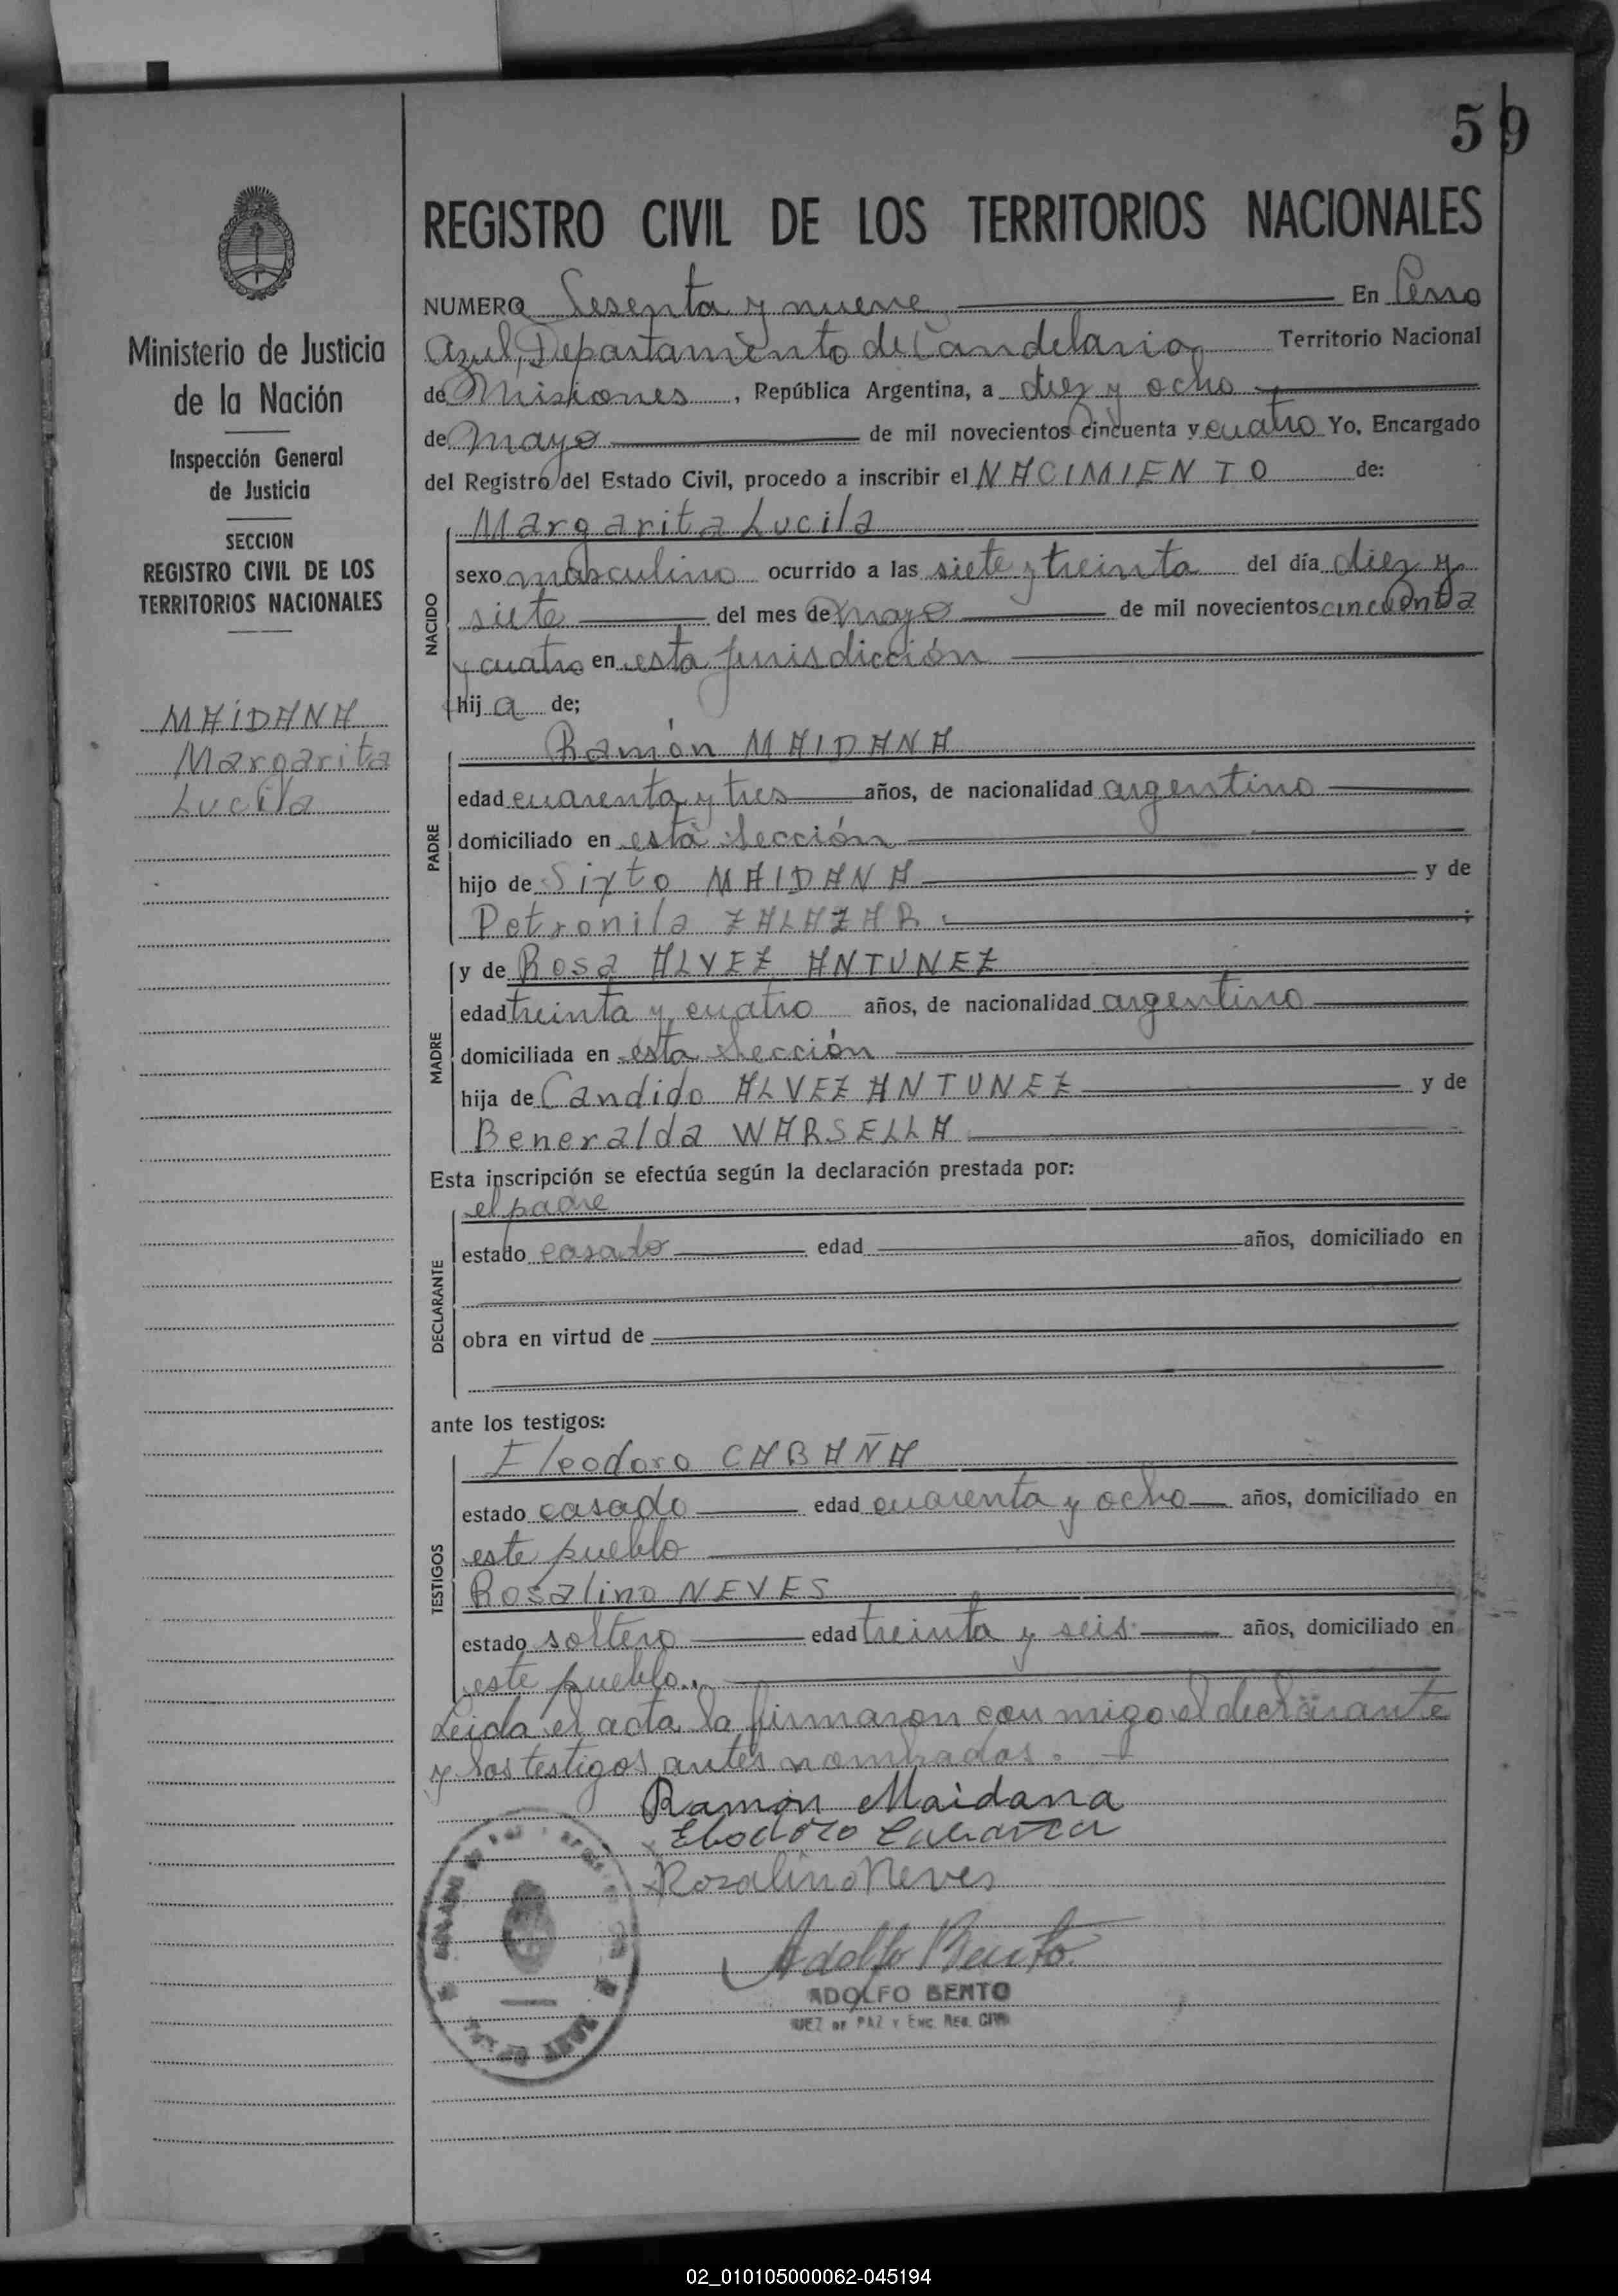 59
REGISTRO CIVIL DE LOS TERRITORIOS NACIONALES
Ministerio de Justicia
de la Nación
Inspección General
de Justicia
SECCION
REGISTRO CIVIL DE LOS
TERRITORIOS NACIONALES
MAIDANA
Margarita
Lucila
NUMERO Sesenta y nueve En Cerro
Azul, Departamento de Candelaria Territorio Nacional
de Misiones, República Argentina, a diez y ocho
de mayo de mil novecientos cincuenta y cuatro Yo, Encargado
del Registro del Estado Civil, procedo a inscribir el NACIMIENTO de:
NACIDO
Margarita Lucila
sexo masculino ocurrido a las siete y treinta del día diez y
siete del mes de mayo de mil novecientos cincuenta
y cuatro en esta jurisdicción
hija de;
PADRE
Ramón MAIDANA
edad cuarenta y tres años, de nacionalidad argentino
domiciliado en esta sección
hijo de Sixto MAIDANA y de
Petronila ZALAZAR ;
MADRE
y de Rosa ALVEZ ANTUNEZ
edad treinta y cuatro años, de nacionalidad argentino
domiciliada en esta sección
hija de Candido ALVEZ ANTUNEZ y de
Beneralda WARSELLA
Esta inscripción se efectúa según la declaración prestada por:
DECLARANTE
el padre
estado casado edad años, domiciliado en
obra en virtud de
ante los testigos:
TESTIGOS
Eleodoro CABAÑA
estado casado edad cuarenta y ocho años, domiciliado en
este pueblo
Rosalino NEVES
estado soltero edad treinta y seis años, domiciliado en
este pueblo.
Leida el acta la firmaron con migo el declarante
y los testigos antes nombrados.
Ramón Maidana
Eleodoro Cabaña
Rozalino Neves
Adolfo Bento
ADOLFO BENTO
JUEZ DE PAZ Y ENC. REG. CIVIL
02_010105000062-045194